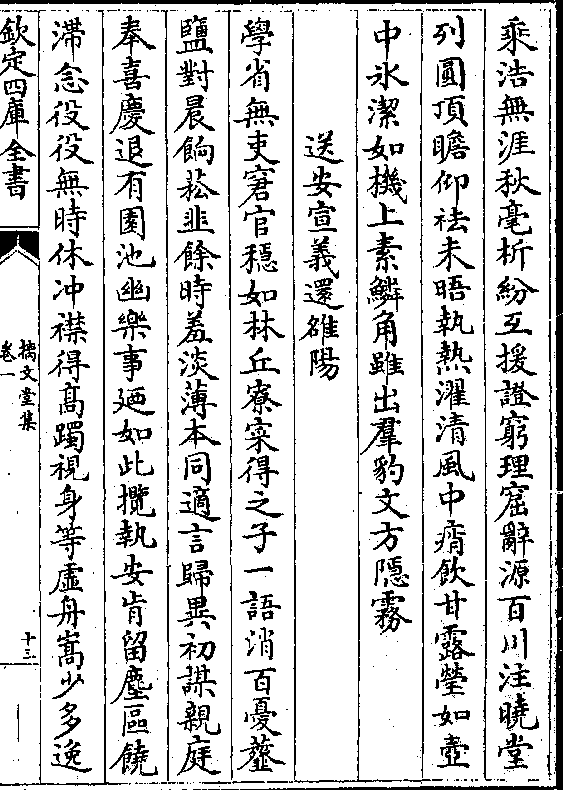 乘浩無涯秋毫析紛互援證窮理窟辭源百川注曉堂
列圓頂瞻仰祛未晤執熱濯清風中痟飲甘露瑩如壺
中氷潔如機上素鱗角雖出羣豹文方隠霧
送安宣義還雒陽
學省無吏窘官穏如林丘寮寀得之子一語消百憂虀
鹽對晨餉菘韭餘時羞淡薄本同適言歸異初謀親庭
奉喜慶退有園池幽樂事廼如此攬執安肯留塵區饒
滯念役役無時休冲襟得髙躅視身等虛舟嵩少多逸
欽定四庫全書
摛文堂集
卷一
十三